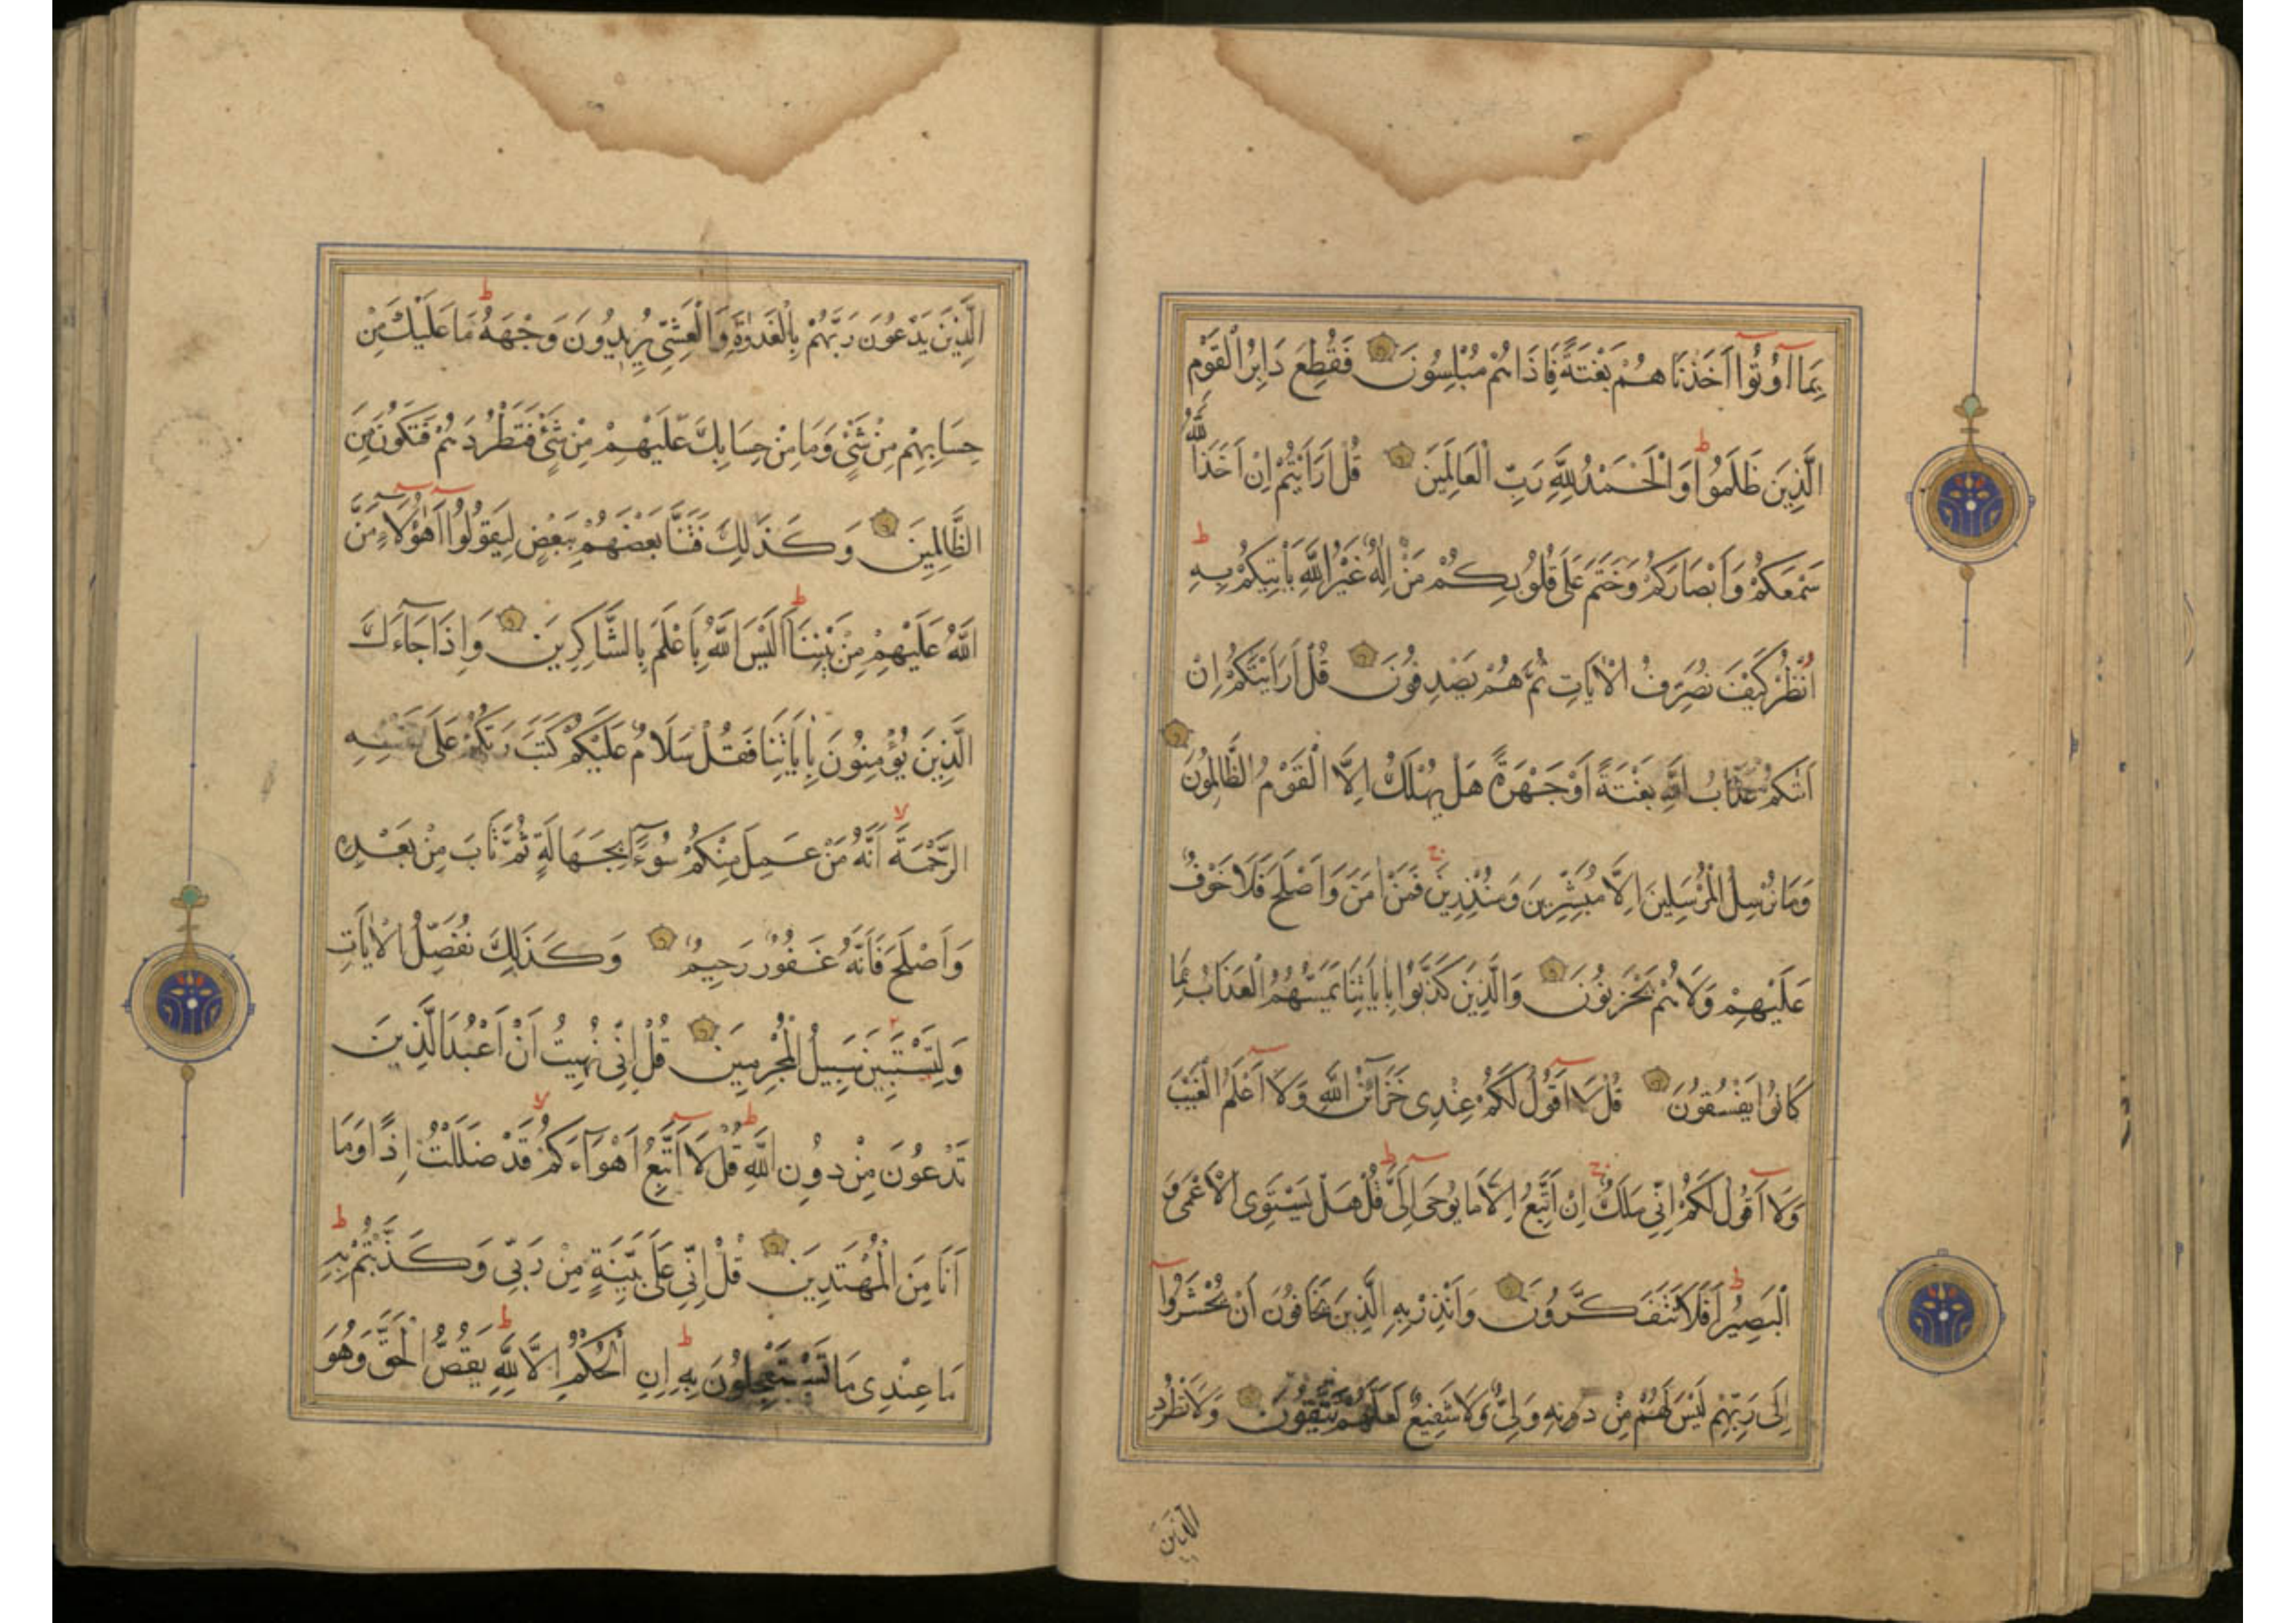 بِمَا اُوتُوا اَخَذْنَاهُمْ بَغْتَةً فَاِذَا هُمْ مُبْلِسُونَ فَقُطِعَ دَابِرُ الْقَوْمِ
الَّذِينَ ظَلَمُوا وَالْحَمْدُ لِلَّهِ رَبِّ الْعَالَمِينَ قُلْ اَرَاَيْتُمْ اِنْ اَخَذَ اللَّهُ
سَمْعَكُمْ وَاَبْصَارَكُمْ وَخَتَمَ عَلَى قُلُوبِكُمْ مَنْ اِلَهٌ غَيْرُ اللَّهِ يَاْتِيكُمْ بِهِ
اُنْظُرْ كَيْفَ نُصَرِّفُ الْاَيَاتِ ثُمَّ هُمْ يَصْدِفُونَ قُلْ اَرَاَيْتَكُمْ اِنْ
اَتَكُمْ عَذَابُ اللَّهِ بَغْتَةً اَوْ جَهْرَةً هَلْ يُهْلَكُ اِلَّا الْقَوْمُ الظَّالِمُونَ
وَمَا نُرْسِلُ الْمُرْسَلِينَ اِلَّا مُبَشِّرِينَ وَمُنْذِرِينَ فَمَنْ اٰمَنَ وَاَصْلَحَ فَلَا خَوْفٌ
عَلَيْهِمْ وَلَا هُمْ يَحْزَنُونَ وَالَّذِينَ كَذَّبُوا بِاٰيَاتِنَا يَمَسُّهُمُ الْعَذَابُ بِمَا
كَانُوا يَفْسُقُونَ قُلْ لَا اَقُولُ لَكُمْ عِنْدِى خَزَآئِنُ اللَّهِ وَلَا اَعْلَمُ الْغَيْبَ
وَلَا اَقُولُ لَكُمْ اِنِّى مَلَكٌ اِنْ اَتَّبِعُ اِلَّا مَا يُوحَى اِلَىَّ قُلْ هَلْ يَسْتَوِى الْاَعْمَى وَ
الْبَصِيرُ اَفَلَا تَتَفَكَّرُونَ وَاَنْذِرْ بِهِ الَّذِينَ يَخَافُونَ اَنْ يُحْشَرُوا
اِلَى رَبِّهِمْ لَيْسَ لَهُمْ مِنْ دُونِهِ وَلِىٌّ وَلَا شَفِيعٌ لَعَلَّهُمْ يَتَّقُونَ وَلَا تَطْرُدِ
الَّذِينَ
الَّذِينَ يَدْعُونَ رَبَّهُمْ بِالْغَدٰوةِ وَالْعَشِىِّ يُرِيدُونَ وَجْهَهُ مَا عَلَيْكَ مِنْ
حِسَابِهِمْ مِنْ شَىْءٍ وَمَا مِنْ حِسَابِكَ عَلَيْهِمْ مِنْ شَىْءٍ فَتَطْرُدَهُمْ فَتَكُونَ مِنَ
الظَّالِمِينَ وَكَذَلِكَ فَتَنَّا بَعْضَهُمْ بِبَعْضٍ لِيَقُولُوا اَهٰؤُلَاءِ مَنَّ
اللَّهُ عَلَيْهِمْ مِنْ بَيْنِنَا اَلَيْسَ اللَّهُ بِاَعْلَمَ بِالشَّاكِرِينَ وَاِذَا جَآءَكَ
الَّذِينَ يُؤْمِنُونَ بِاٰيَاتِنَا فَقُلْ سَلَامٌ عَلَيْكُمْ كَتَبَ رَبُّكُمْ عَلَى نَفْسِهِ
الرَّحْمَةَ اَنَّهُ مَنْ عَمِلَ مِنْكُمْ سُوٓءًا بِجَهَالَةٍ ثُمَّ تَابَ مِنْ بَعْدِهِ
وَاَصْلَحَ فَاَنَّهُ غَفُورٌ رَحِيمٌ وَكَذَلِكَ نُفَصِّلُ الْاٰيَاتِ
وَلِتَسْتَبِينَ سَبِيلُ الْمُجْرِمِينَ قُلْ اِنِّى نُهِيتُ اَنْ اَعْبُدَ الَّذِينَ
تَدْعُونَ مِنْ دُونِ اللَّهِ قُلْ لَا اَتَّبِعُ اَهْوَآءَكُمْ قَدْ ضَلَلْتُ اِذًا وَمَا
اَنَا مِنَ الْمُهْتَدِينَ قُلْ اِنِّى عَلَى بَيِّنَةٍ مِنْ رَبِّى وَكَذَّبْتُمْ بِهِ
مَا عِنْدِى مَا تَسْتَعْجِلُونَ بِهِ اِنِ الْحُكْمُ اِلَّا لِلَّهِ يَقُصُّ الْحَقَّ وَهُوَ